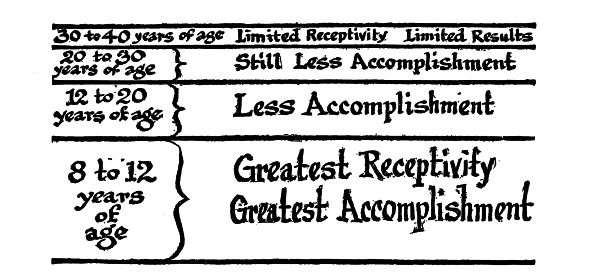 30 to 40 years of age Limited Receptivity Limited Results
20 to 30
years of age
Still Less Accomplishment
12 to 20
years of age
Less Accomplishment
8 to 12
years
of
age
Greatest Receptivity
Greatest Accomplishment